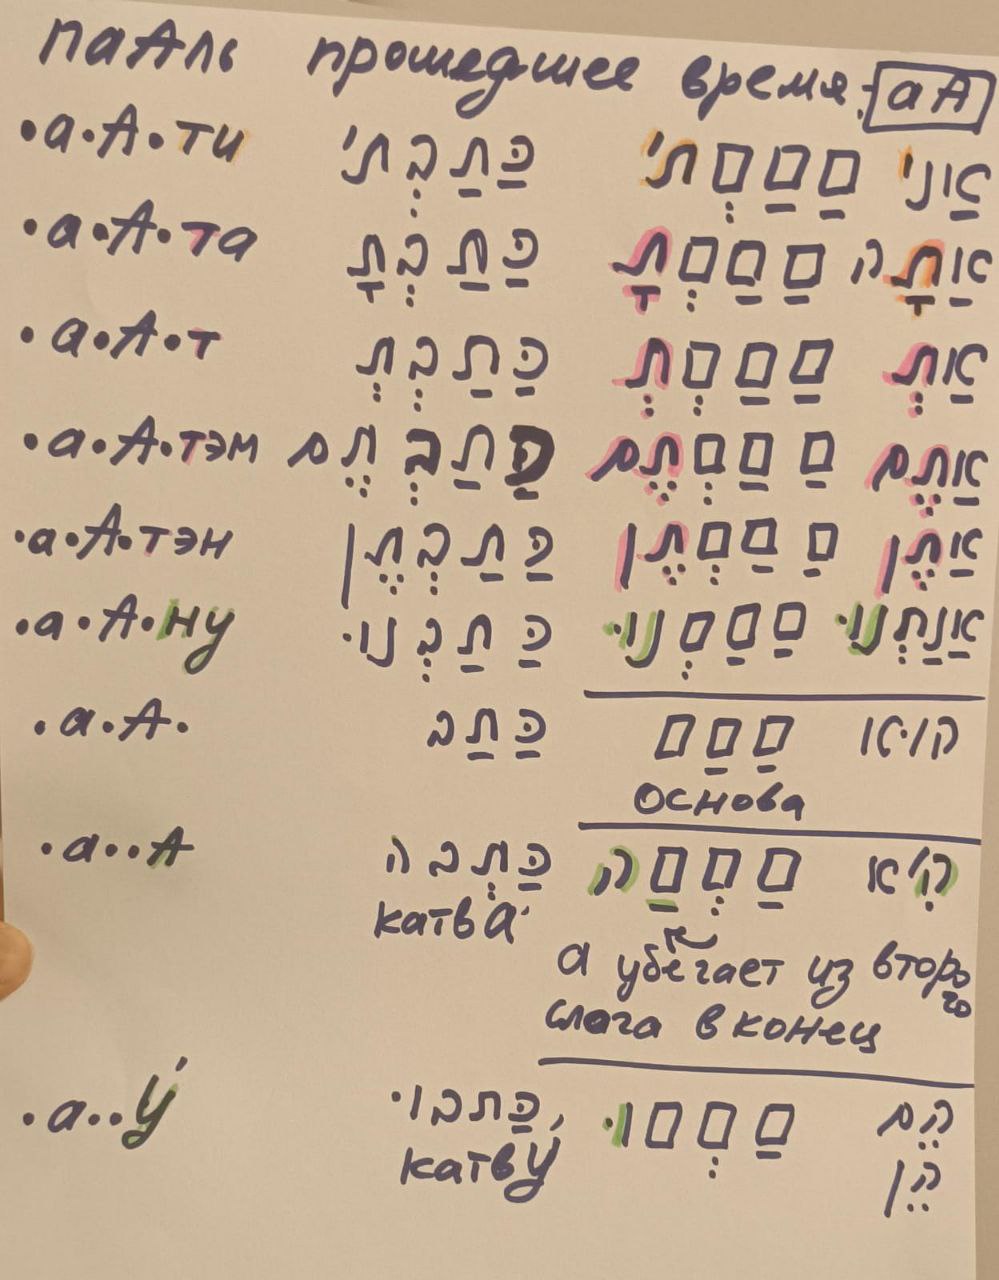 паАль прошедшее время. аА
•а•А•ти כַּתַבְתי □ַ□ַ□ְתי אַני
•а•А•та כַּתַבְתָ □ַ□ַ□ְתָ אַתָה
•а•А•т כַּתַבְתְ □ַ□ַ□ְתְ אַתְ
•а•А•тэм כַּתַבְתֶם □ַ□ַ□ְתֶם אַתֶם
•а•А•тэн כַּתַבְתֶן □ַ□ַ□ְתֶן אַתֶן
•а•А•ну כַּתַבְנוּ □ַ□ַ□ְנוּ אַנַחְנוּ
•а•А• כַּתַב □ַ□ַ□ הוּא
основа
•а••А כַּתְבה □ַ□ְ□ַה הִיא
катвА́
а убегает из второго
слога в конец
•а••У́ כַּתבוּ □ַ□ְ□וּ הֶם
катвУ́ הֵן